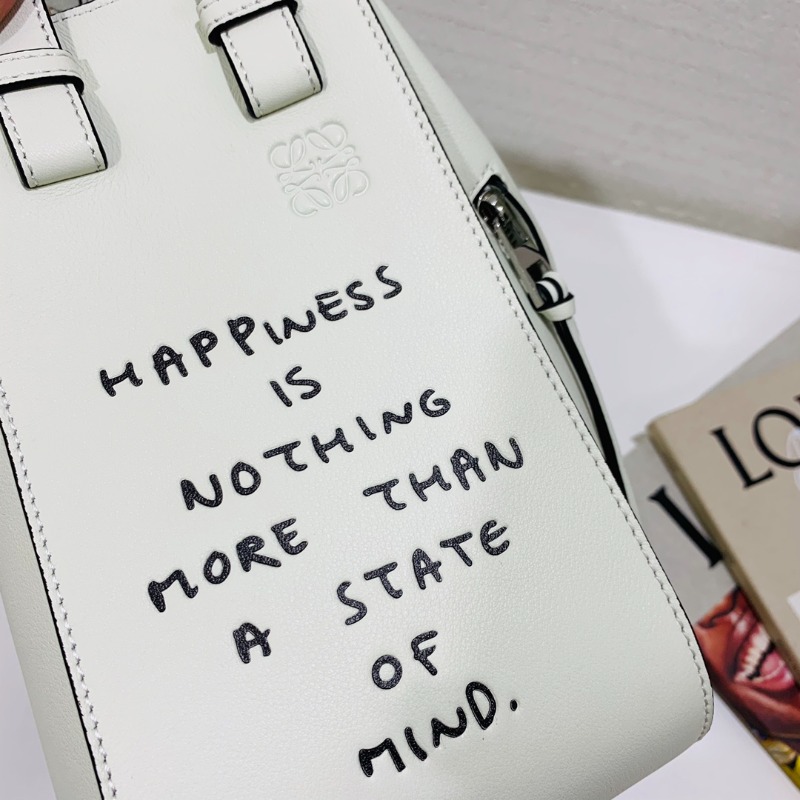 HAPPINESS
IS
NOTHING
MORE THAN
A STATE
OF
MIND.
LO
L